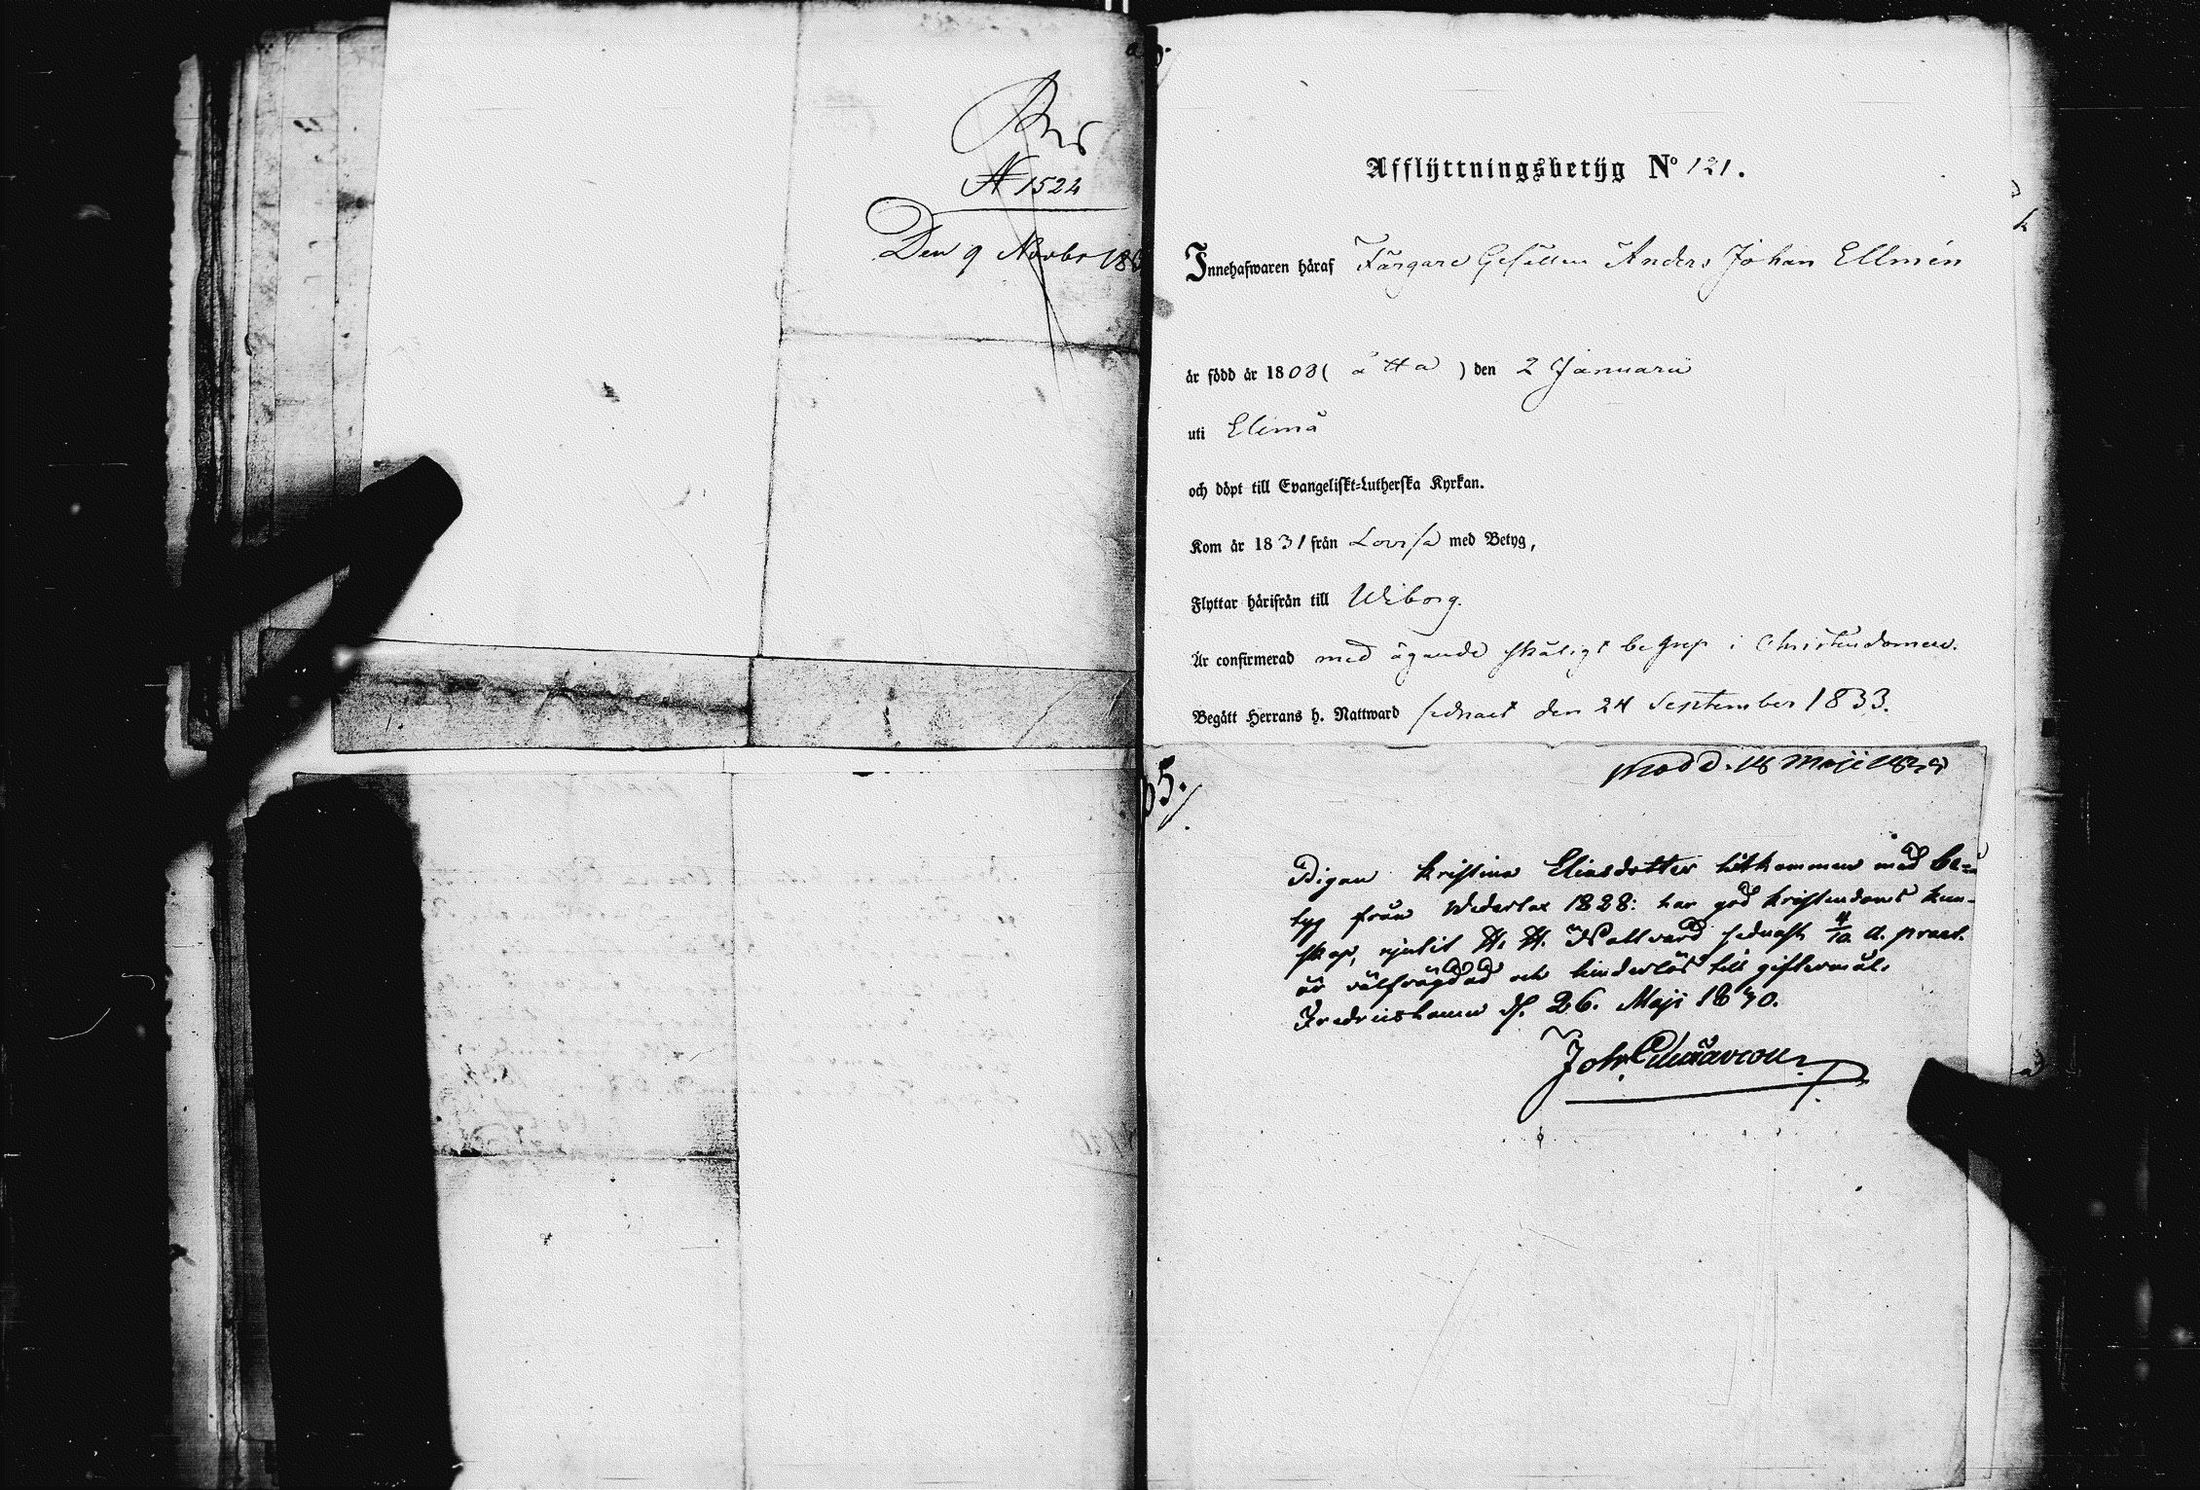 N 1524
Den 9 Novbr 18
Afflyttningsbetyg No 121.
Innehafwaren häraf Färgare Gesällen Anders Johan Ellmén
är född år 1808 ( åtta ) den 2 Januarii
uti Elimä
och döpt till Evangeliskt-Lutherska Kyrkan.
Kom år 1831 från Lovisa med Betyg,
Flyttar härifrån till Wiborg.
Är confirmerad med ägande skäligt begrep i Christendomen.
Begått Herrans h. Nattward sednast den 24 September 1833.
d. 18 Maji
65.
Pigan Kristina Eliasdotter hitkommen med be-
tyg från Wederlax 1828: har god kristendoms kun-
skap, njutit H. H. Nattvard sednast 4/10 a. praet.
är välfrägdad och hinderlös till giftermål.
Fredricshamn d. 26. Maji 1840.
Joh.